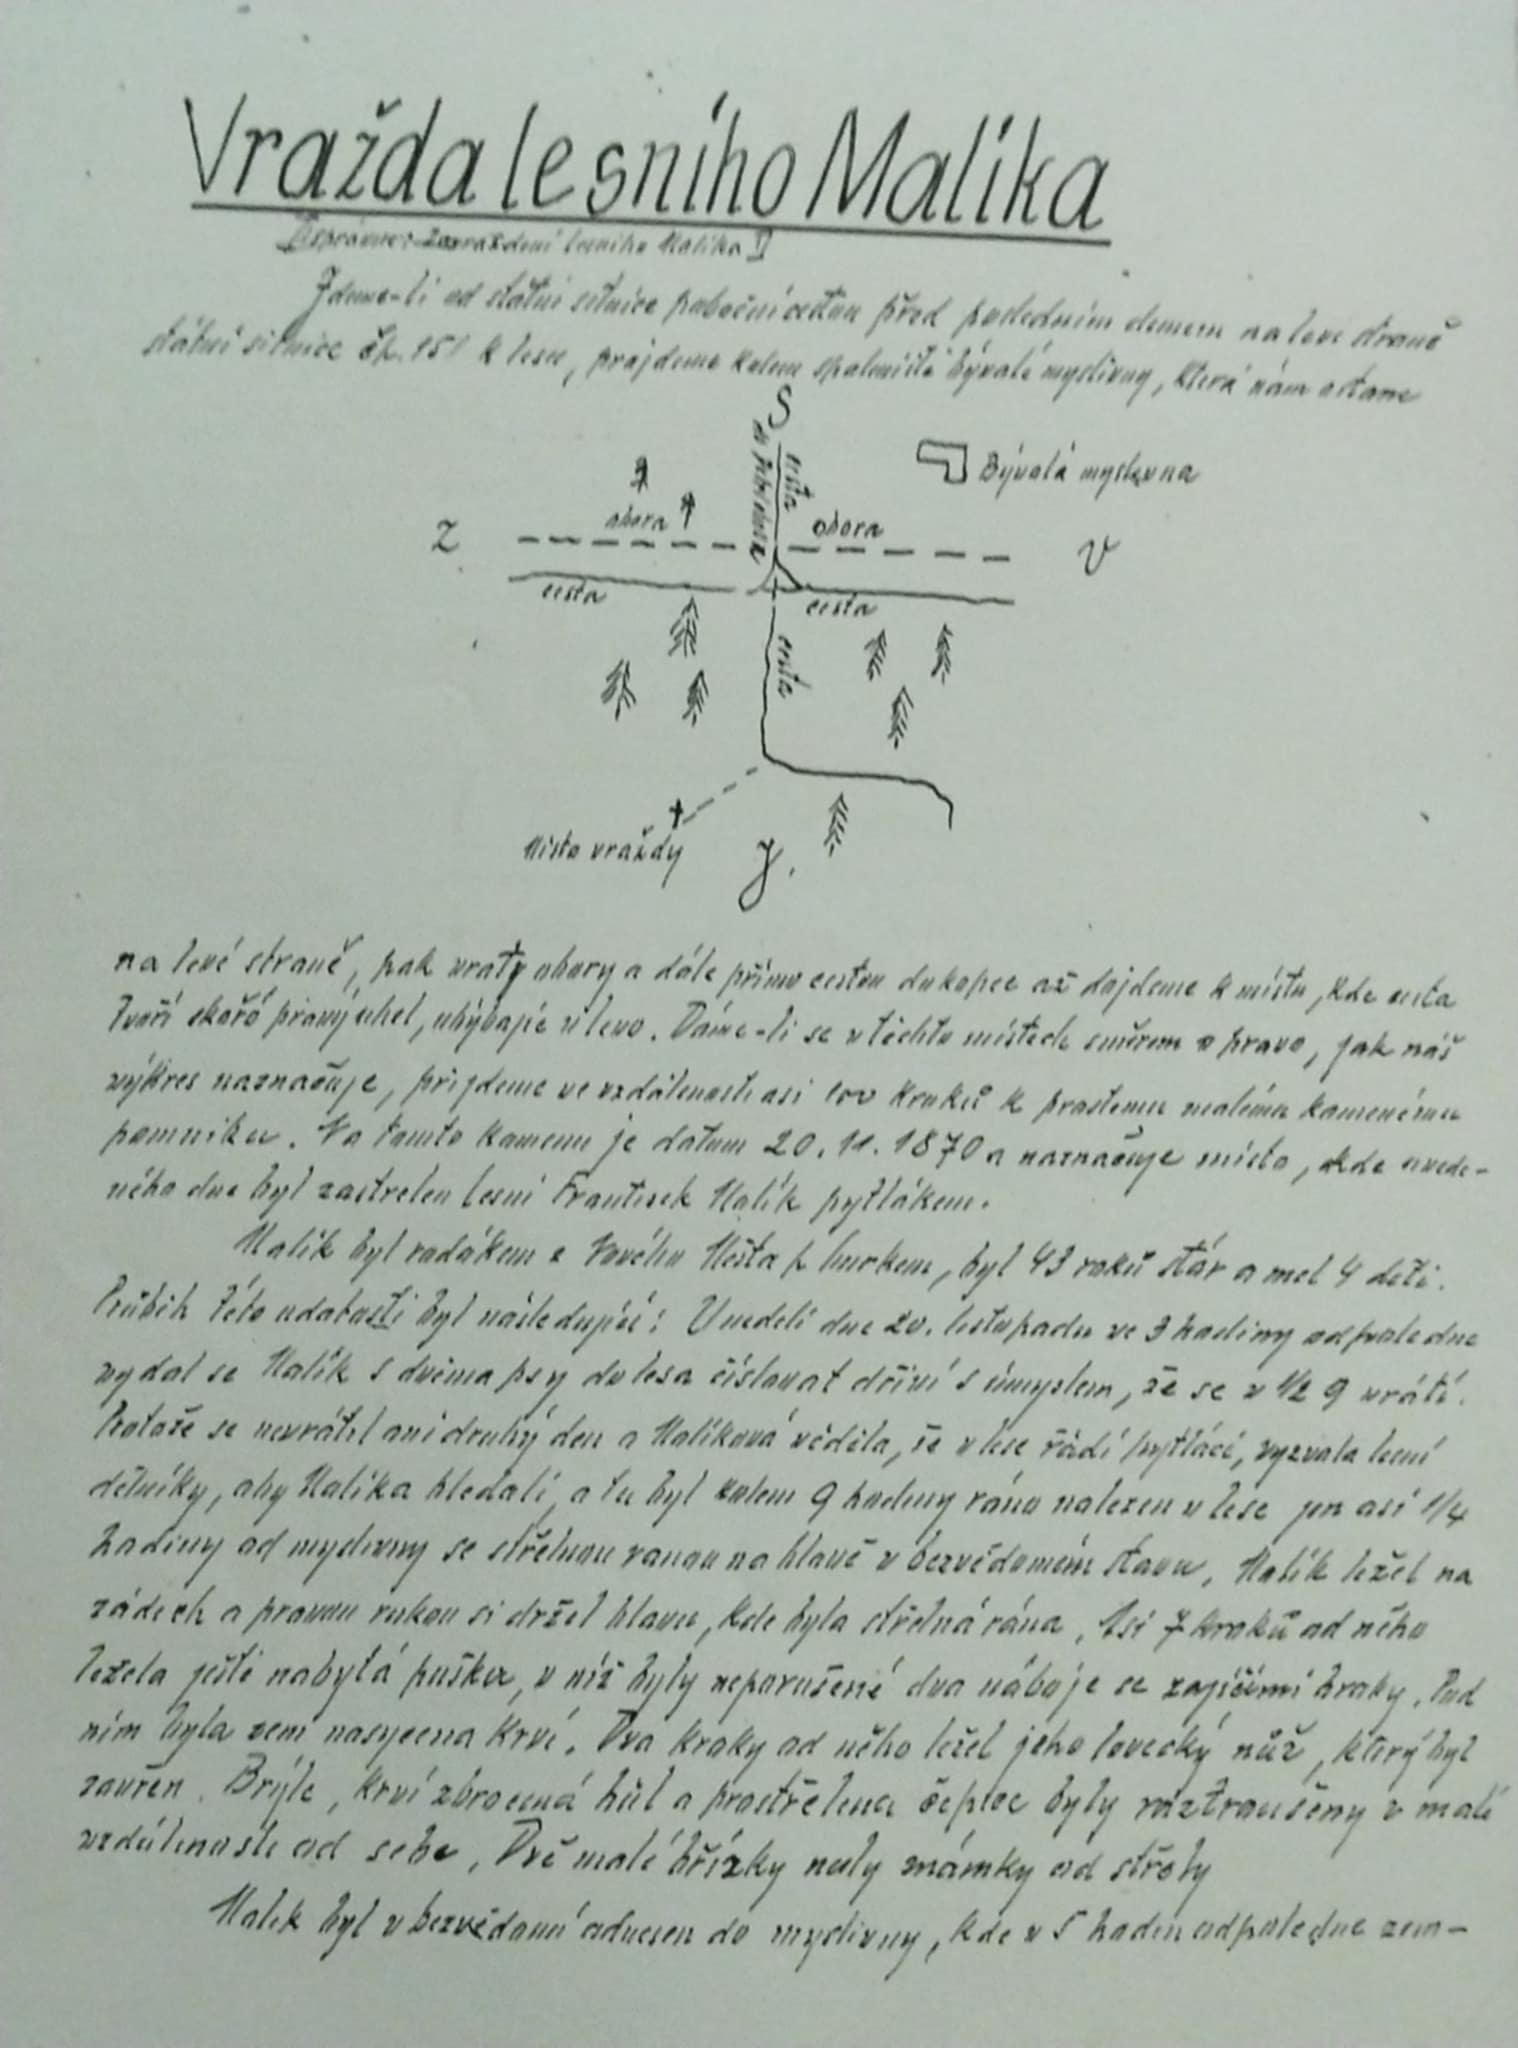 Vražda lesního Malíka
[Správně: Zavraždění lesního Malíka!]
Jdeme-li od státní silnice poboční cestou před posledním domem na levé straně
státní silnice čp. 151 k lesu, projdeme kolem spáleniště bývalé myslivny, která nám ostane
S
do
cesta
Bývalá myslivna
obora
obora
Z
V
cesta
cesta
cesta
Místo vraždy
J.
na levé straně, pak vraty obory a dále přímo cestou do kopce až dojdeme k místu, kde cesta
tvoří skoro pravý uhel, uhýbajíc v levo. Dáme-li se v těchto místech směrem v pravo, jak náš
výkres naznačuje, přijdeme ve vzdálenosti asi 100 kroků k prostému malému kamennému
pomníku. Na tomto kamenu je datum 20. 11. 1870 a naznačuje místo, kde uvede-
ného dne byl zastřelen lesní František Malík pytlákem.
Malík byl rodákem z Nového Města p. Smrkem, byl 43 roků stár a mel 4 deti.
Průběh této události byl následující: V neděli dne 20. listopadu ve 3 hodiny odpoledne
vydal se Malík s dvěma psy do lesa číslovat dříví s úmyslem, že se v 1/2 9 vrátí.
Protože se nevrátil ani druhý den a Malíková věděla, že v lese řádí pytláci, vyzvala lesní
dělníky, aby Malíka hledali, a tu byl kolem 9 hodiny ráno nalezen v lese jen asi 1/4
hodiny od myslivny se střelnou ranou na hlavě v bezvědomém stavu. Malík ležel na
zádech a pravou rukou si držel hlavu, kde byla střelná rána. Asi 7 kroků od něho
ležela ještě nabytá puška, v níž byly neporušené dva náboje se zaječími broky. Pod
ním byla zem nasycena krví. Dva kroky od něho ležel jeho lovecký nůž, který byl
zavřen. Brýle, krví zbrocená hůl a prostřelena čepice byly roztroušeny v malé
vzdálenosti od sebe. Dvě malé břízky nesly známky od střely
Malík byl v bezvědomí odnesen do myslivny, kde v 5 hodin odpoledne zem-